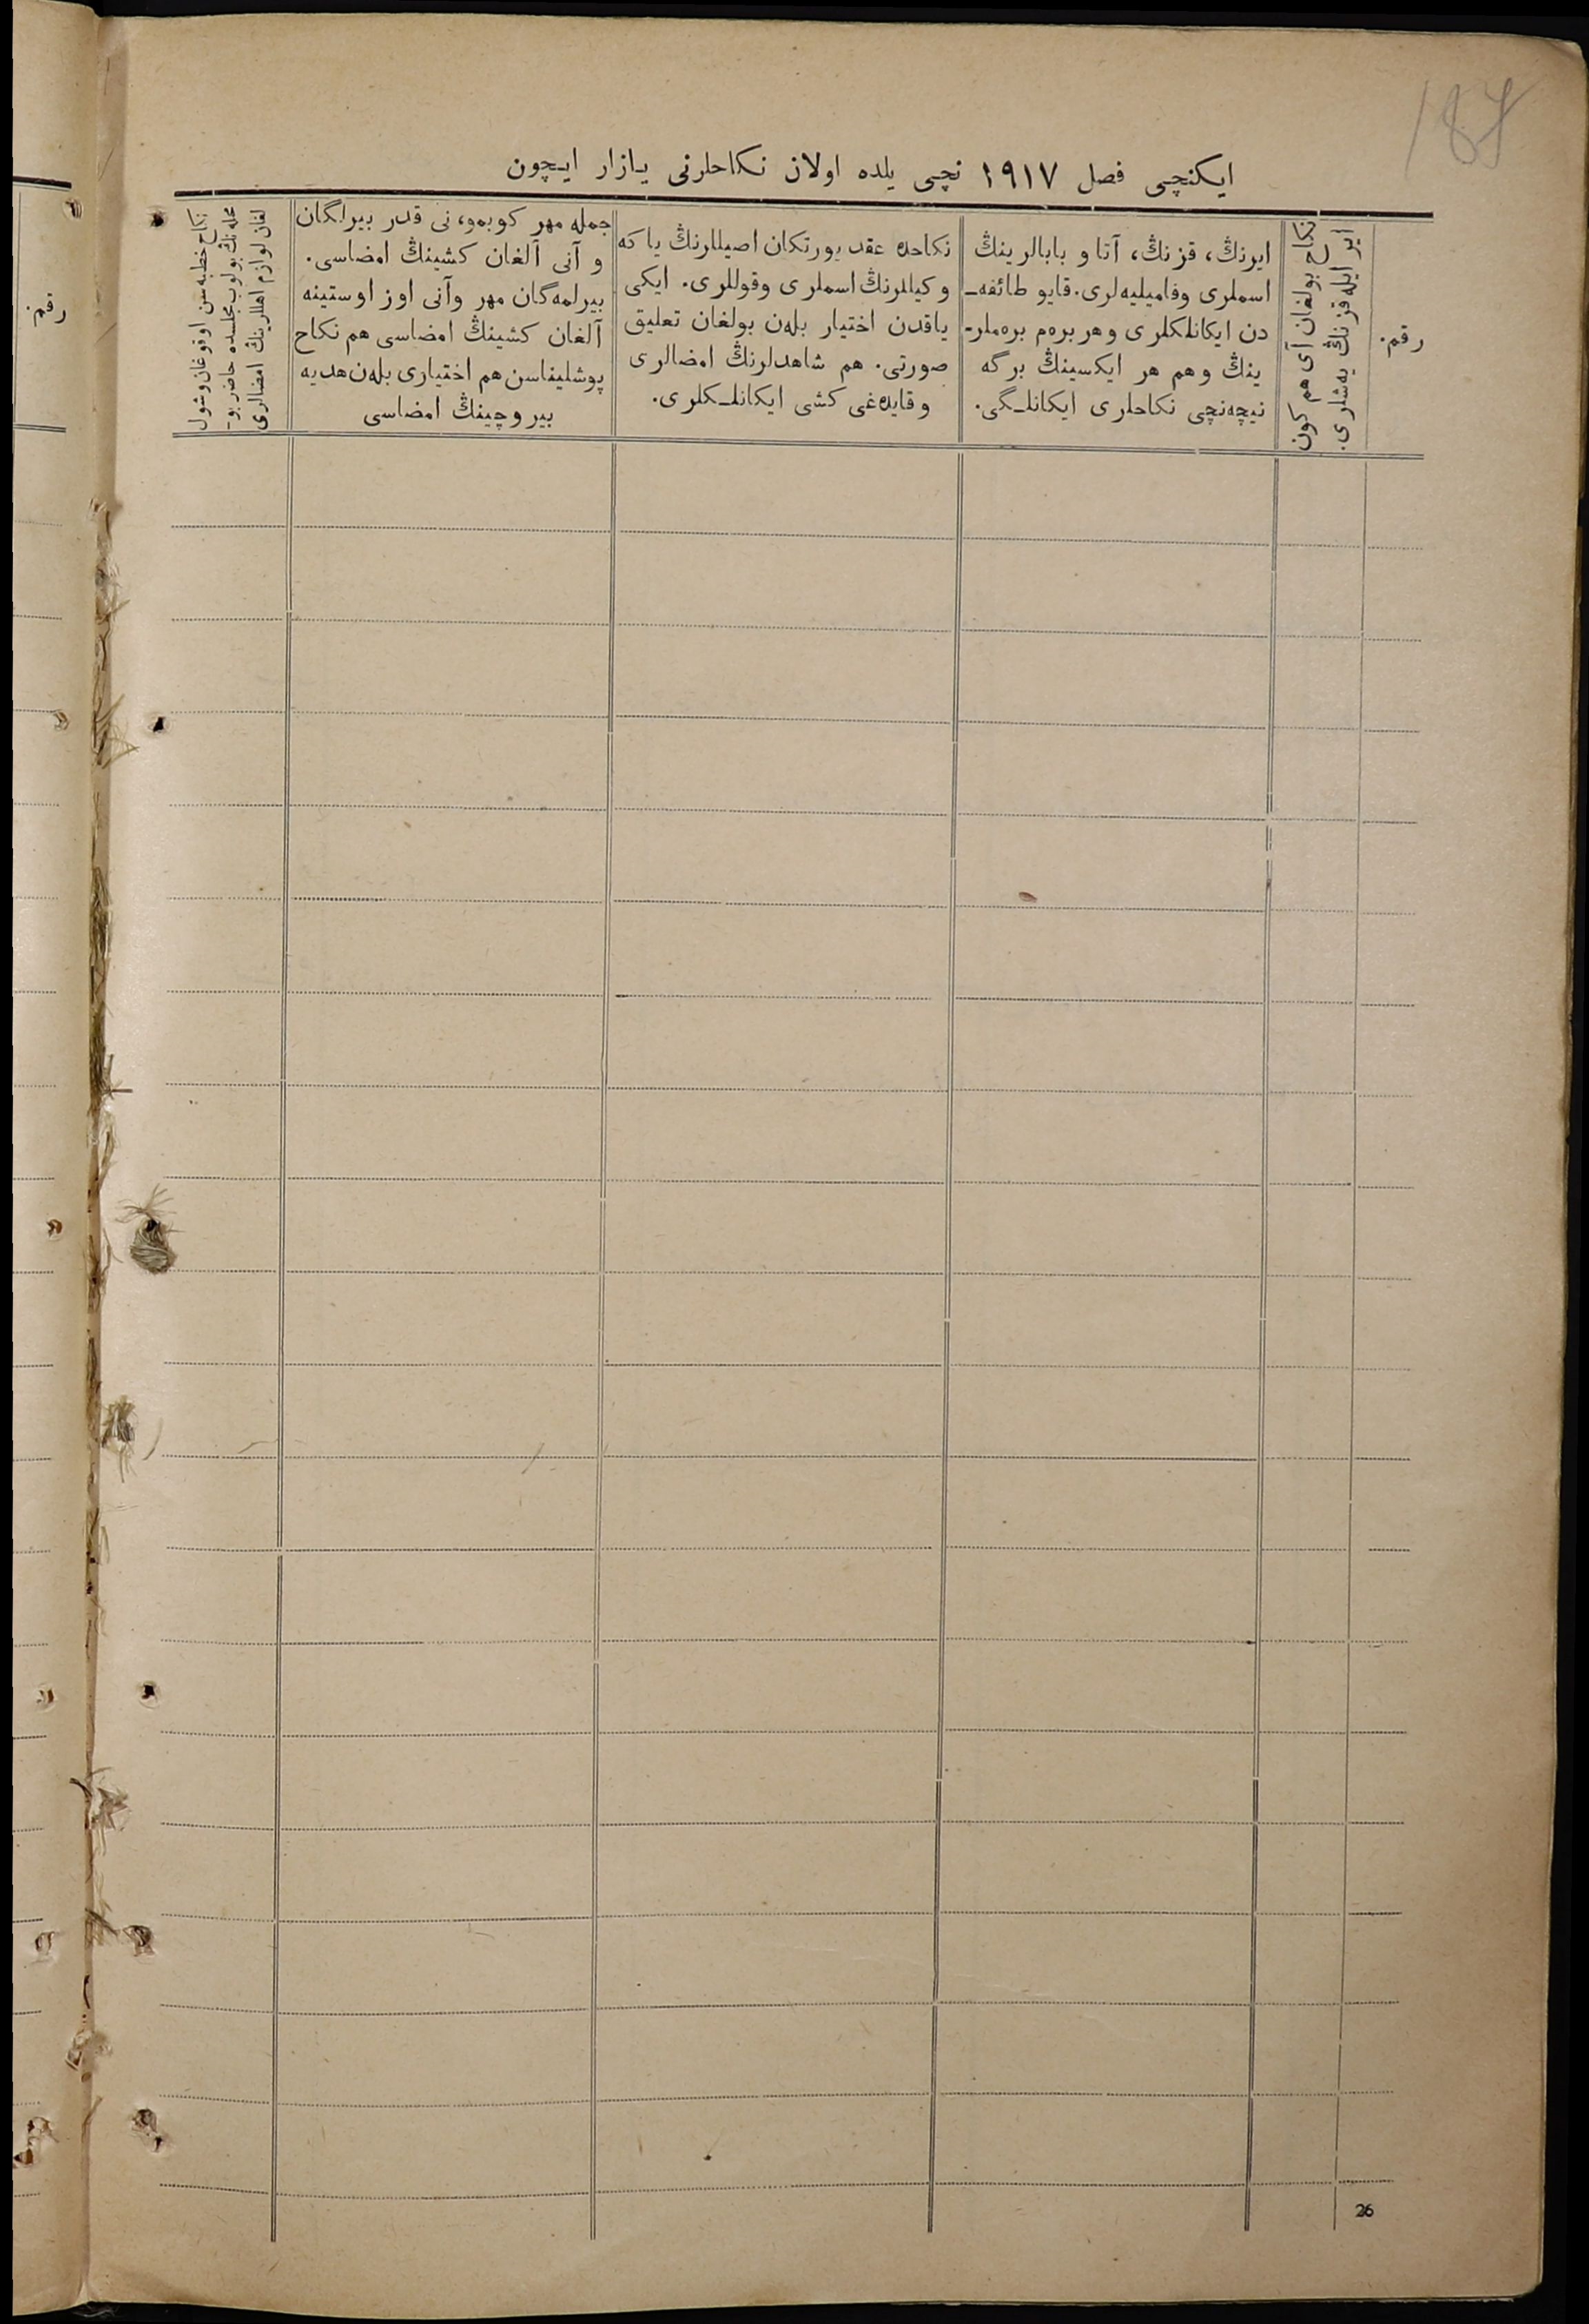 187
ایکنچی فصل ١٩١٧ نچی یلده اولان نکاحلرنی یازار ایچون
رقم.
نکاح بولغان آی هم کون
ایر ایله قزنڭ یه‌شلری.
ایرنڭ، قزنڭ، آتا و بابالرینڭ
اسملری وفامیلیه‌لری. قایو طائفه‌ـ
دن ایکانلکلری وهر بره‌م بره‌ملر-
ینڭ وهم هر ایکسینڭ برگه
نیچه‌نچی نکاحلری ایکانلـگی.
نکاحده عقد یورتکان اصیللرنڭ یا که
وکیللرنڭ اسملری وقوللری. ایکی
یاقدن اختیار بله‌ن بولغان تعلیق
صورتی. هم شاهدلرنڭ امضالری
وقایده‌غی کشی ایکانلـکلری.
جمله مهر کوبمو، نی قدر بیرلگان
و آنی آلغان کشینڭ امضاسی.
بیرلمه‌گان مهر وآنی اوز اوستینه
آلغان کشینڭ امضاسی هم نکاح
پوشلیناسن هم اختیاری بله‌ن هدیه
بیروچینڭ امضاسی
نکاح خطبه‌سن اوقوغان وشول
محله‌نڭ بولوب مجلسده حاضر بو-
لغان لوازم اهللرینڭ امضالری
رقم.
26